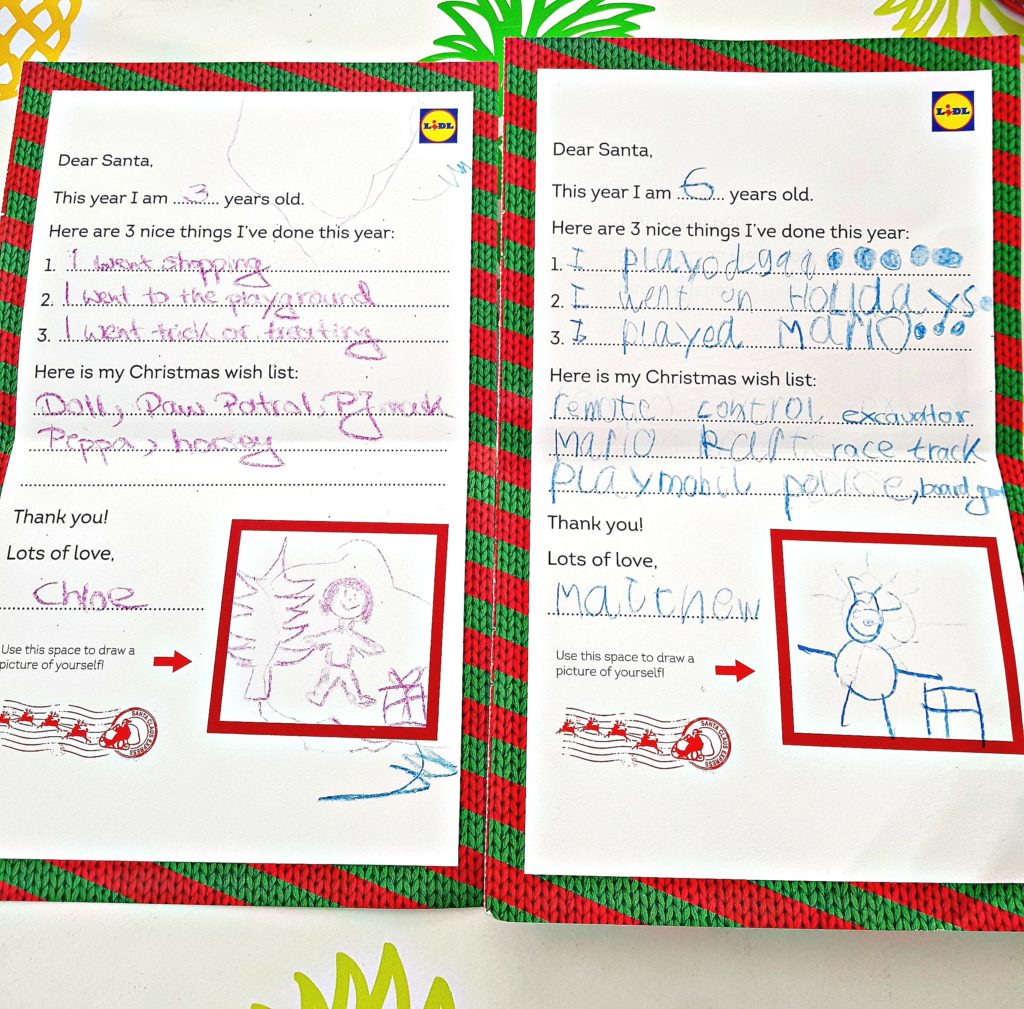 LiDL
Dear Santa,
This year I am 3 years old.
Here are 3 nice things I've done this year:
1. I went shopping
2. I went to the playground
3. I went trick or treating
Here is my Christmas wish list:
Doll, Paw Patrol, PJ mask
Peppa, horsey
Thank you!
Lots of love,
Chloe
Use this space to draw a
picture of yourself!
SANTA CLAUS EXPRESS
LiDL
Dear Santa,
This year I am 6 years old.
Here are 3 nice things I've done this year:
1. I
2. I went on HOLIdayS
3. I played MARIO
Here is my Christmas wish list:
remote control excavator
MARIO KART race track
Playmobil police, board
Thank you!
Lots of love,
Matthew
Use this space to draw a
picture of yourself!
SANTA CLAUS EXPRESS